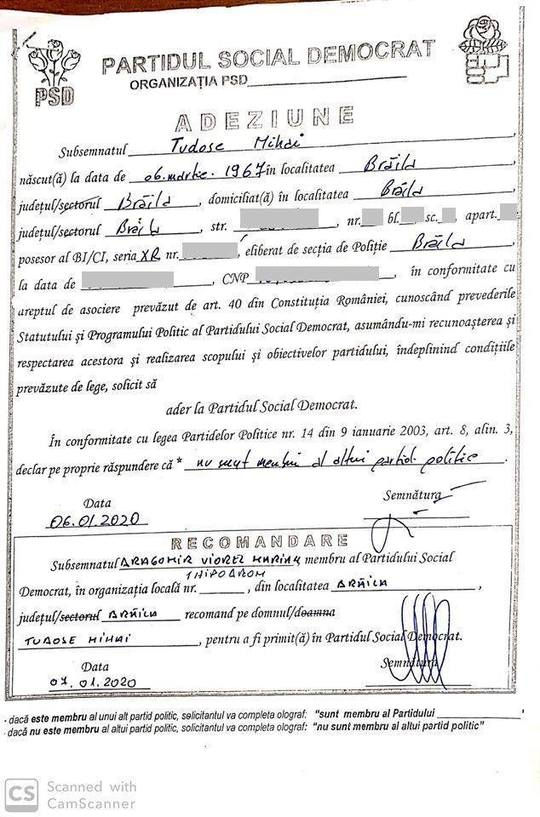 PSD
PARTIDUL SOCIAL DEMOCRAT
ORGANIZAŢIA PSD
ADEZIUNE
Subsemnatul Tudose Mihai,
născut(ă) la data de 06.martie.1967 în localitatea Brăila
judeţul/sectorul Brăila, domiciliat(ă) în localitatea Brăila
judeţul/sectorul Brăila, str. nr. bl. sc. , apart.
posesor al BI/CI, seria XR nr. , eliberat de secţia de Poliţie Brăila,
la data de , CNP , în conformitate cu
areptul de asociere prevăzut de art. 40 din Constituţia României, cunoscând prevederile
Statutului şi Programului Politic al Partidului Social Democrat, asumându-mi recunoaşterea şi
respectarea acestora şi realizarea scopului şi obiectivelor partidului, îndeplinind condiţiile
prevăzute de lege, solicit să
ader la Partidul Social Democrat.
În conformitate cu legea Partidelor Politice nr. 14 din 9 ianuarie 2003, art. 8, alin. 3,
declar pe proprie răspundere că * nu sunt membru al altui partid politic.
Data Semnătură
06.01.2020
RECOMANDARE
Subsemnatul DRAGOMIR VIOREL MARIAN membru al Partidului Social
HIPODROM
Democrat, în organizaţia locală nr. , din localitatea BRĂILA,
judeţul/sectorul BRĂILA recomand pe domnul/doamna
TUDOSE MIHAI, pentru a fi primit(ă) în Partidul Social Democrat.
Data Semnătura
07.01.2020
- dacă este membru al unui alt partid politic, solicitantul va completa olograf: "sunt membru al Partidului "
- dacă nu este membru al altui partid politic, solicitantul va completa olograf: "nu sunt membru al altui partid politic"
CS Scanned with
CamScanner